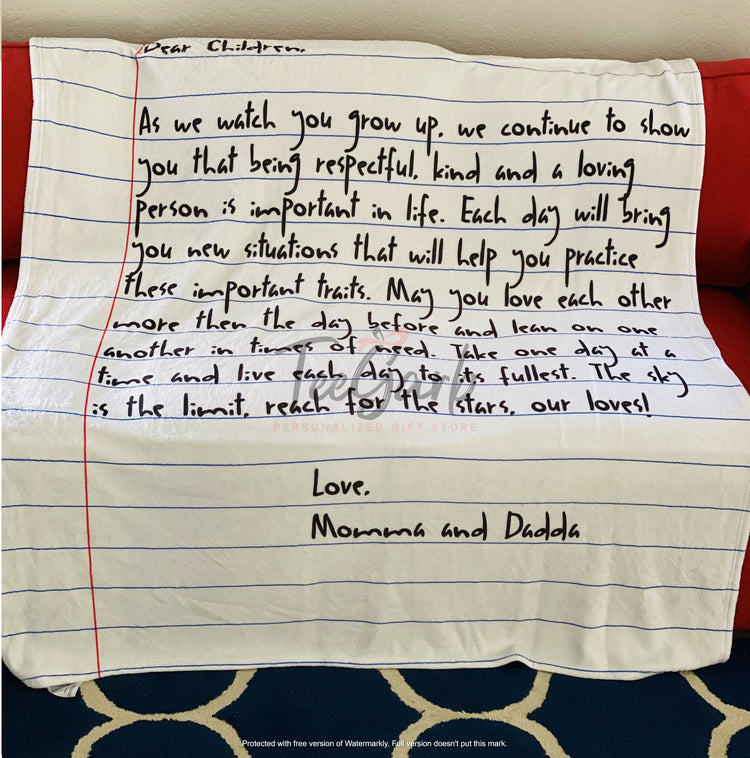 Dear Children,
As we watch you grow up, we continue to show
you that being respectful, kind and a loving
person is important in life. Each day will bring
you new situations that will help you practice
these important traits. May you love each other
more then the day before and lean on one
another in times of need. Take one day at a
time and live each day to its fullest. The sky
is the limit, reach for the stars, our loves!
TeeGarly
PERSONALIZED GIFT STORE
Love,
Momma and Dadda
Protected with free version of Watermarkly. Full version doesn't put this mark.